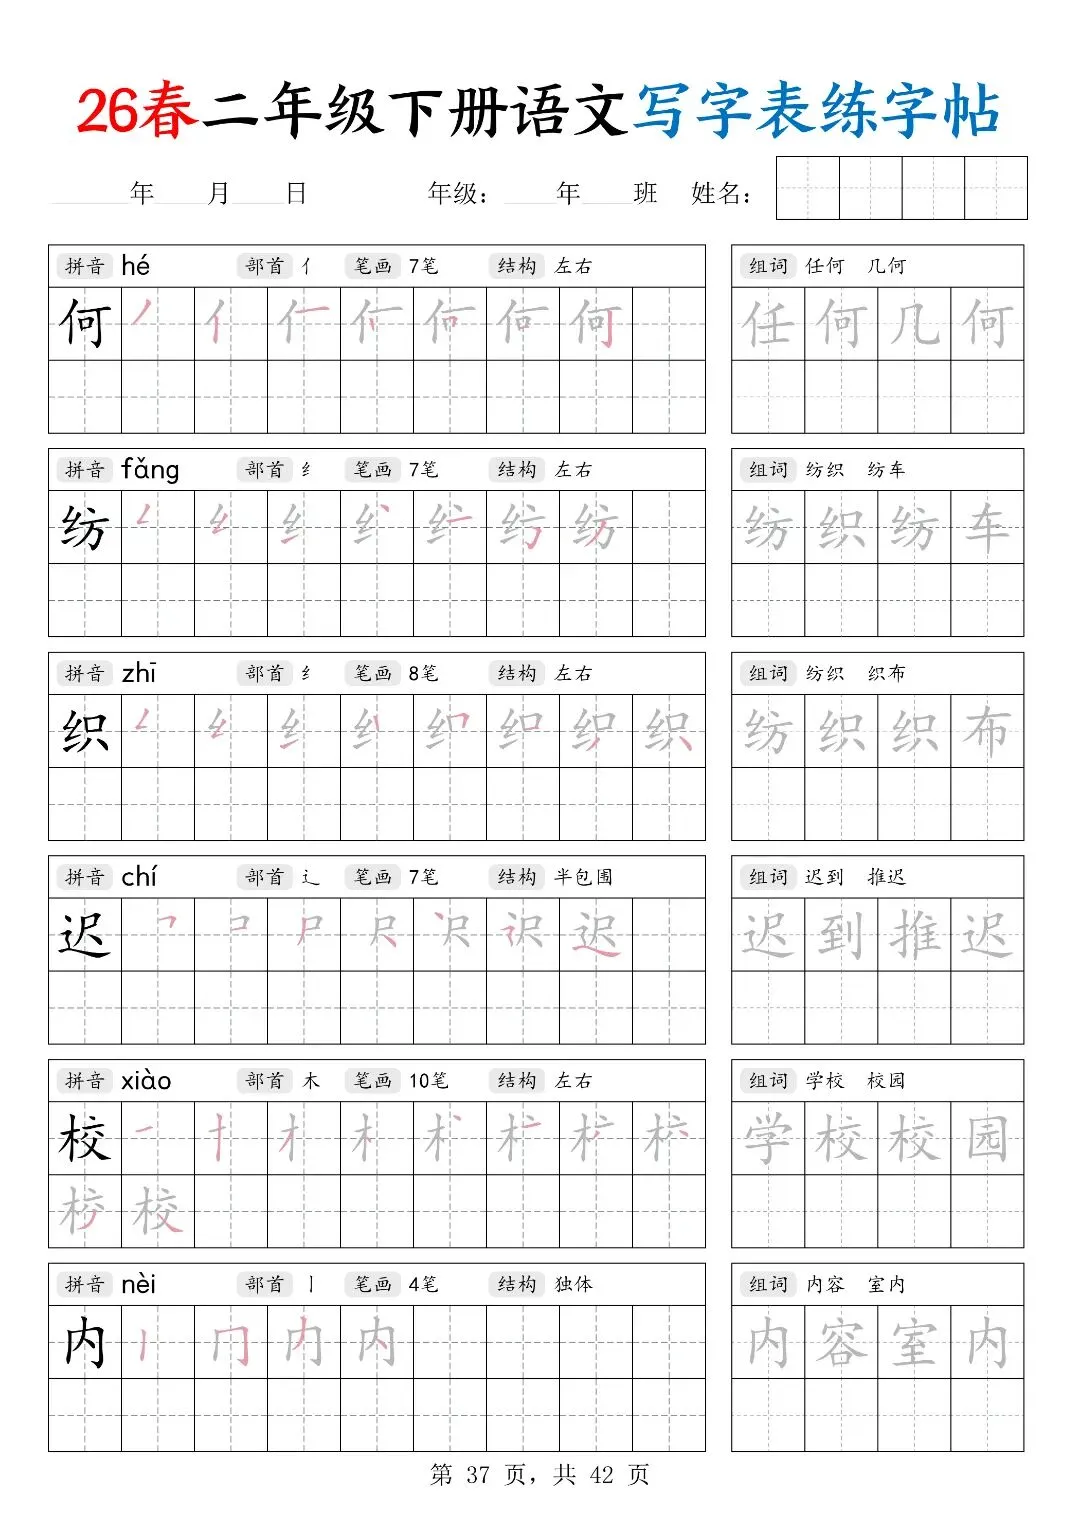 26春二年级下册语文写字表练字帖
年 月 日 年级： 年 班 姓名：
拼音 hé 部首 亻 笔画 7笔 结构 左右 组词 任何 几何
何 任何几何
拼音 fǎng 部首 纟 笔画 7笔 结构 左右 组词 纺织 纺车
纺 纺织纺车
拼音 zhī 部首 纟 笔画 8笔 结构 左右 组词 纺织 织布
织 纺织织布
拼音 chí 部首 辶 笔画 7笔 结构 半包围 组词 迟到 推迟
迟 迟到推迟
拼音 xiào 部首 木 笔画 10笔 结构 左右 组词 学校 校园
校 学校校园
校
拼音 nèi 部首 丨 笔画 4笔 结构 独体 组词 内容 室内
内 内 内容室内
第 37 页，共 42 页